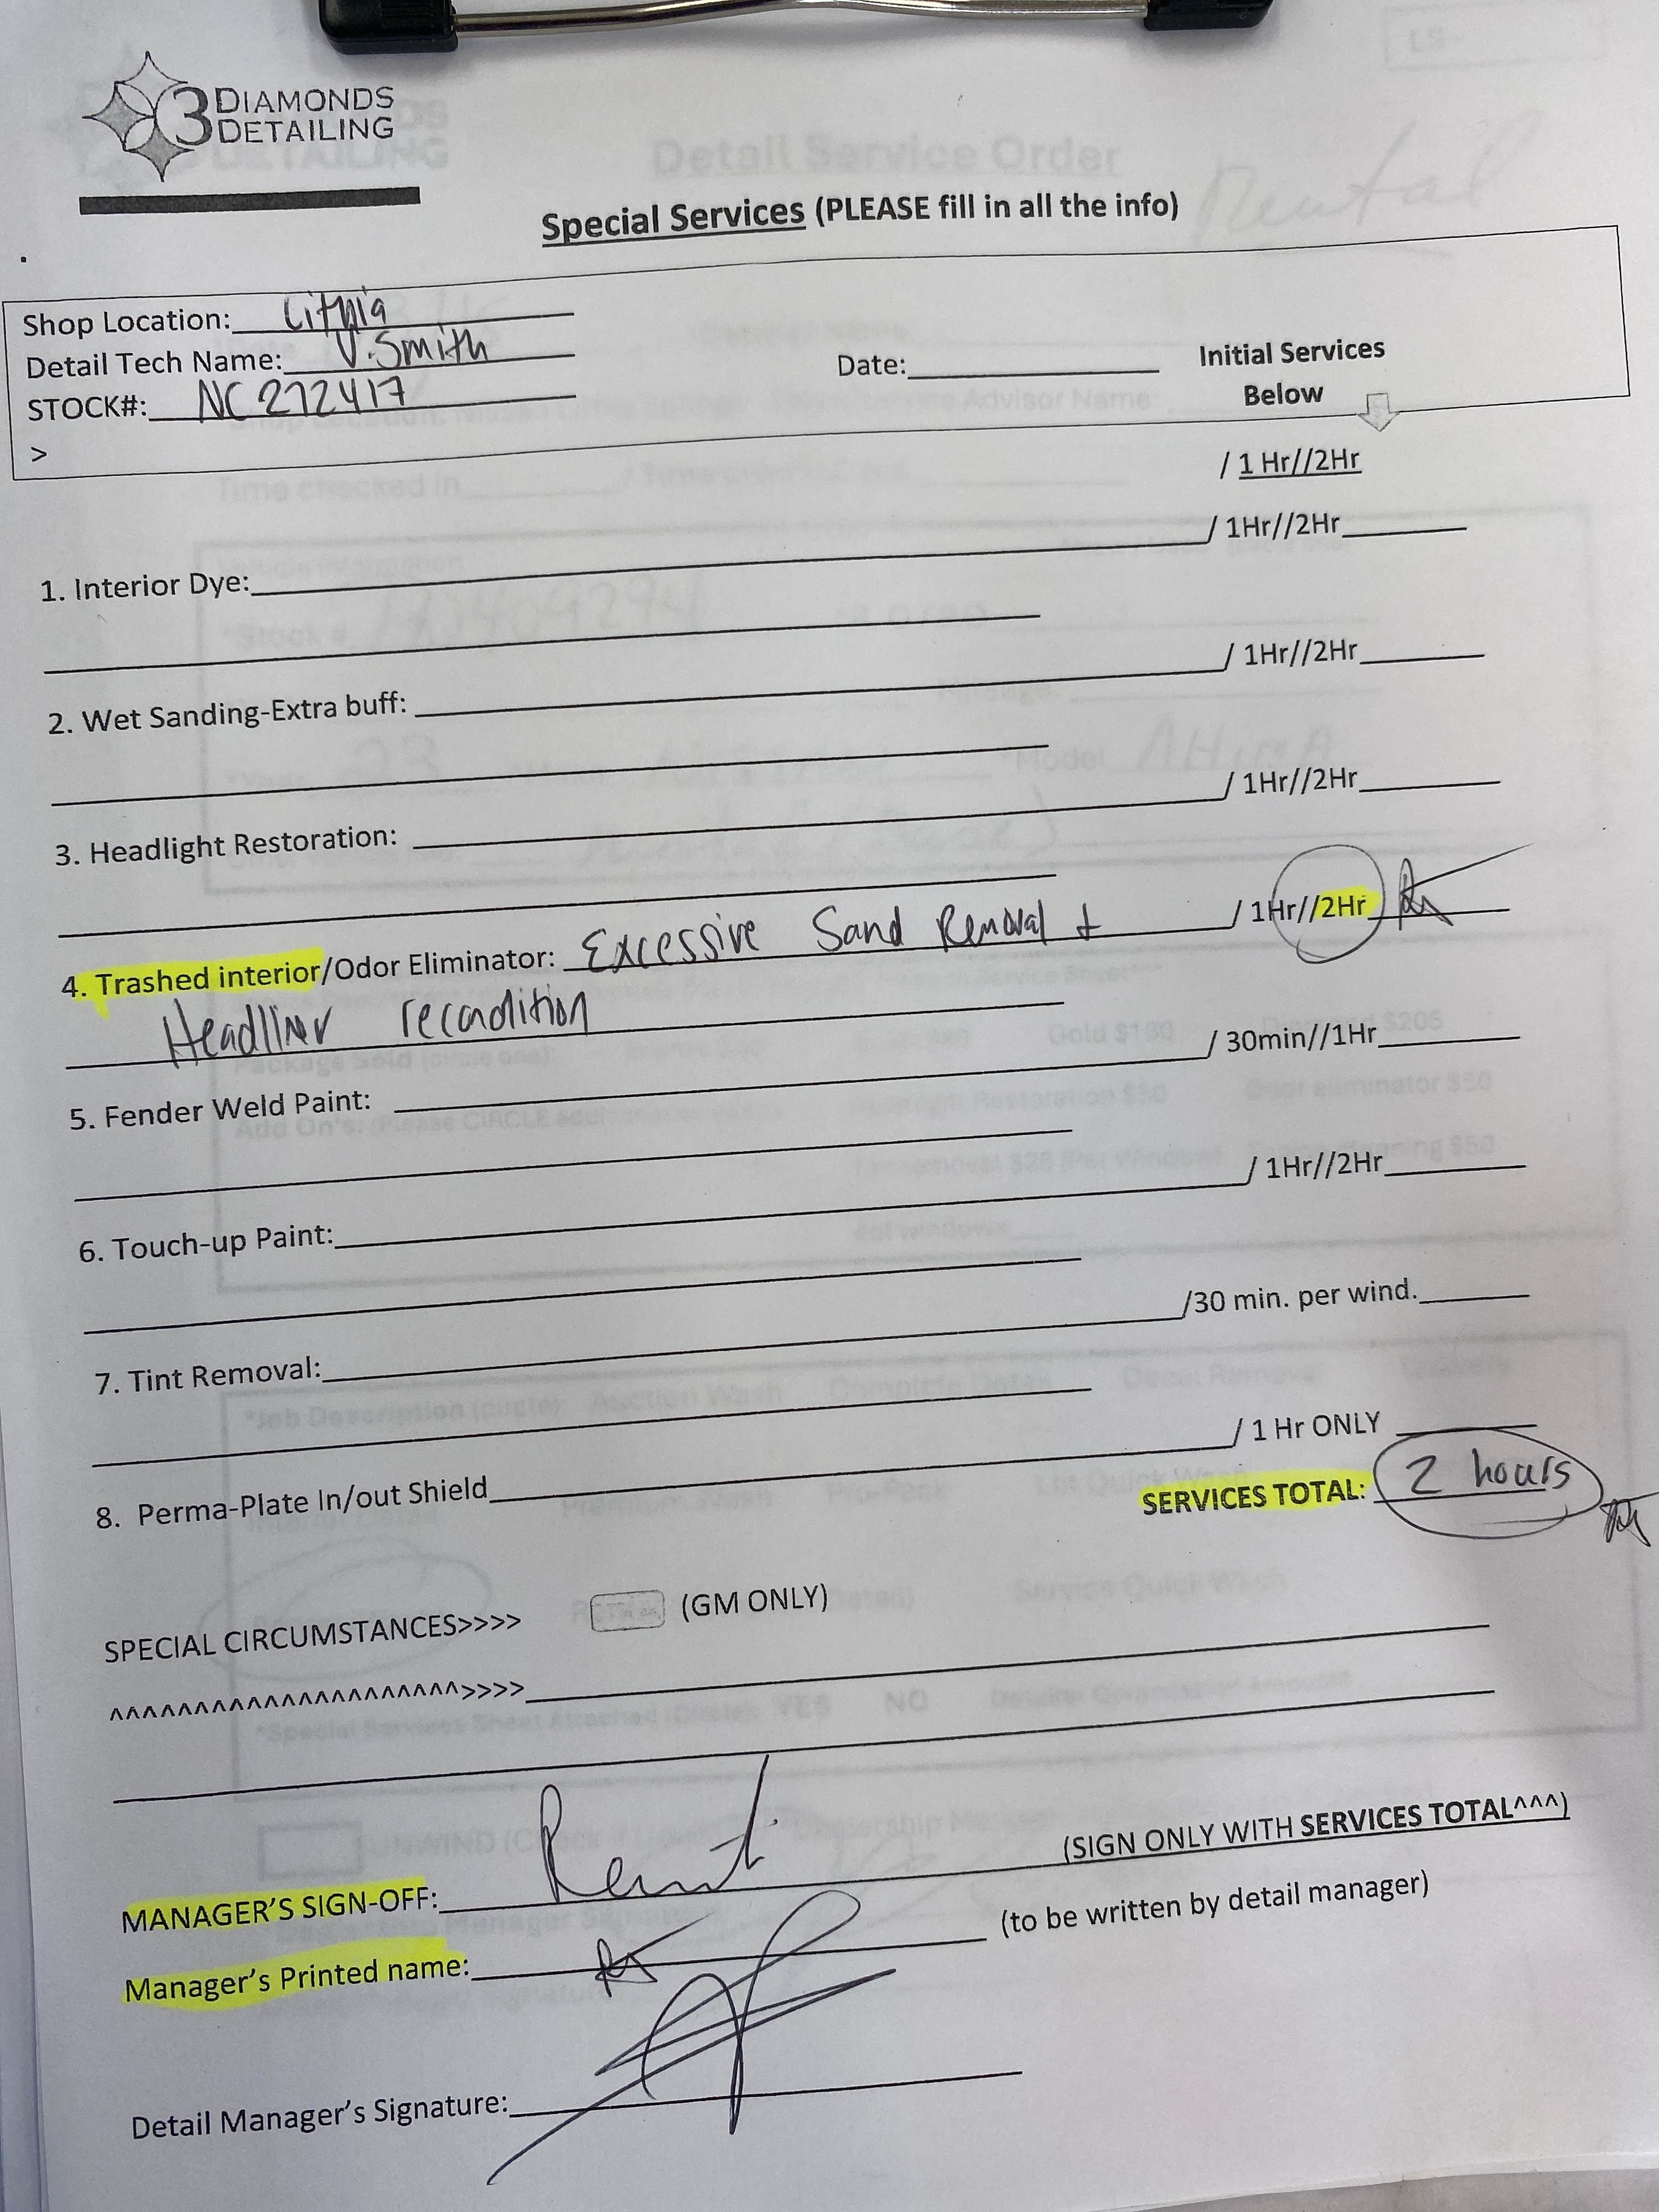 3 DIAMONDS
DETAILING
Detail Service Order
Rental
Special Services (PLEASE fill in all the info)
Shop Location: Lithia
Detail Tech Name: V. Smith
Date:
Initial Services
Below
STOCK#: NC272417
>
/ 1 Hr//2Hr
1. Interior Dye: / 1Hr//2Hr
2. Wet Sanding-Extra buff: / 1Hr//2Hr
3. Headlight Restoration: / 1Hr//2Hr
4. Trashed interior/Odor Eliminator: Excessive Sand Removal + / 1Hr//2Hr
Headliner recondition
5. Fender Weld Paint: / 30min//1Hr
6. Touch-up Paint: / 1Hr//2Hr
7. Tint Removal: /30 min. per wind.
8. Perma-Plate In/out Shield / 1 Hr ONLY
SERVICES TOTAL: 2 hours
SPECIAL CIRCUMSTANCES>>>> (GM ONLY)
^^^^^^^^^^^^^^^^^^^^^>>>>
MANAGER'S SIGN-OFF: (SIGN ONLY WITH SERVICES TOTAL^^^)
Manager's Printed name: (to be written by detail manager)
Detail Manager's Signature: